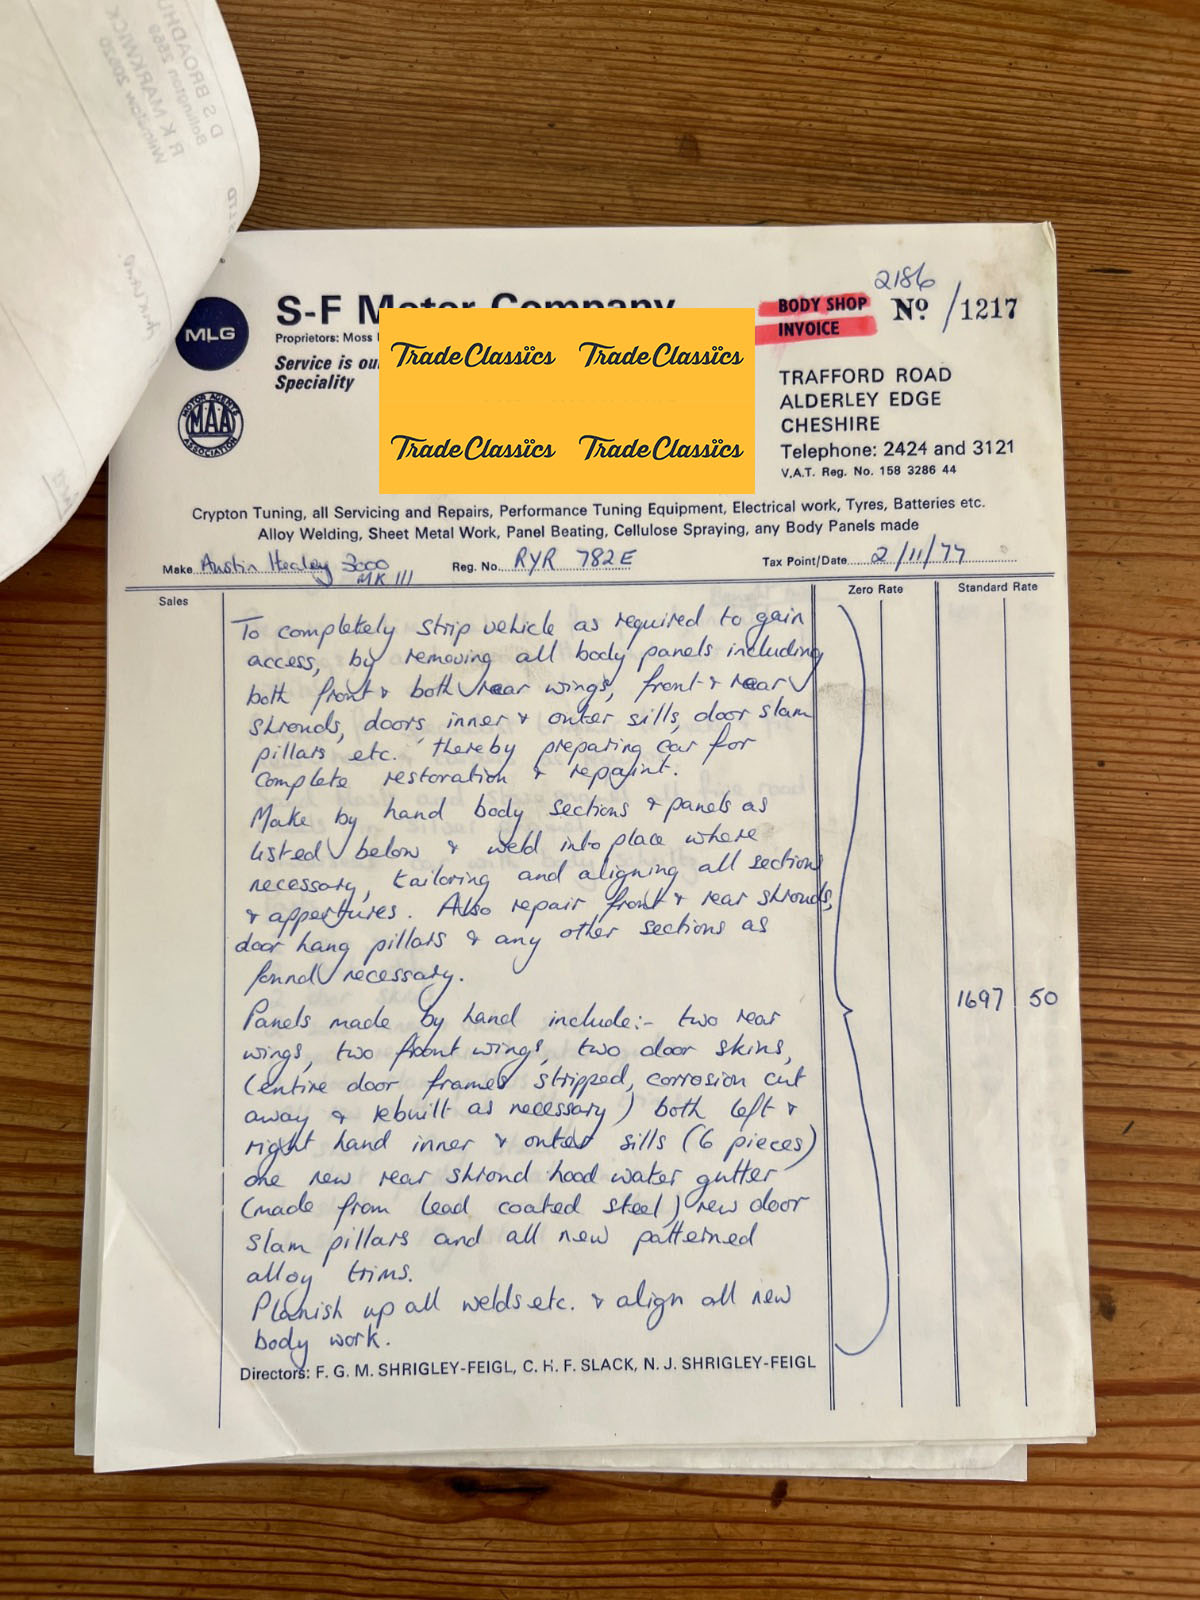 D S BROADHU
Bollington 2669
R K MARKWICK
Wilmslow 20920
MLG
S-F Motor Company
Proprietors: Moss
Service is ou
Speciality
MOTOR AGENTS
MAA
ASSOCIATION
TradeClassics TradeClassics
TradeClassics TradeClassics
2186
BODY SHOP
INVOICE
No /1217
TRAFFORD ROAD
ALDERLEY EDGE
CHESHIRE
Telephone: 2424 and 3121
V.A.T. Reg. No. 158 3286 44
Crypton Tuning, all Servicing and Repairs, Performance Tuning Equipment, Electrical work, Tyres, Batteries etc.
Alloy Welding, Sheet Metal Work, Panel Beating, Cellulose Spraying, any Body Panels made
Make Austin Healey 3000 MK III Reg. No. RYR 782E Tax Point/Date 2/11/77
Sales Zero Rate Standard Rate
To completely strip vehicle as required to gain
access, by removing all body panels including
both front & both rear wings, front & rear
shrouds, doors inner & outer sills, door slam
pillars etc. thereby preparing car for
complete restoration & repaint.
Make by hand body sections & panels as
listed below & weld into place where
necessary, tailoring and aligning all sections
& appertures. Also repair front & rear shrouds,
door hang pillars & any other sections as
found necessary.
1697 50
Panels made by hand include:- two rear
wings, two front wings, two door skins,
(entire door frames stripped, corrosion cut
away & rebuilt as necessary) both left &
right hand inner & outer sills (6 pieces)
one new rear shroud hood water gutter
(made from lead coated steel) new door
slam pillars and all new patterned
alloy trims.
Planish up all welds etc. & align all new
body work.
Directors: F. G. M. SHRIGLEY-FEIGL, C. H. F. SLACK, N. J. SHRIGLEY-FEIGL